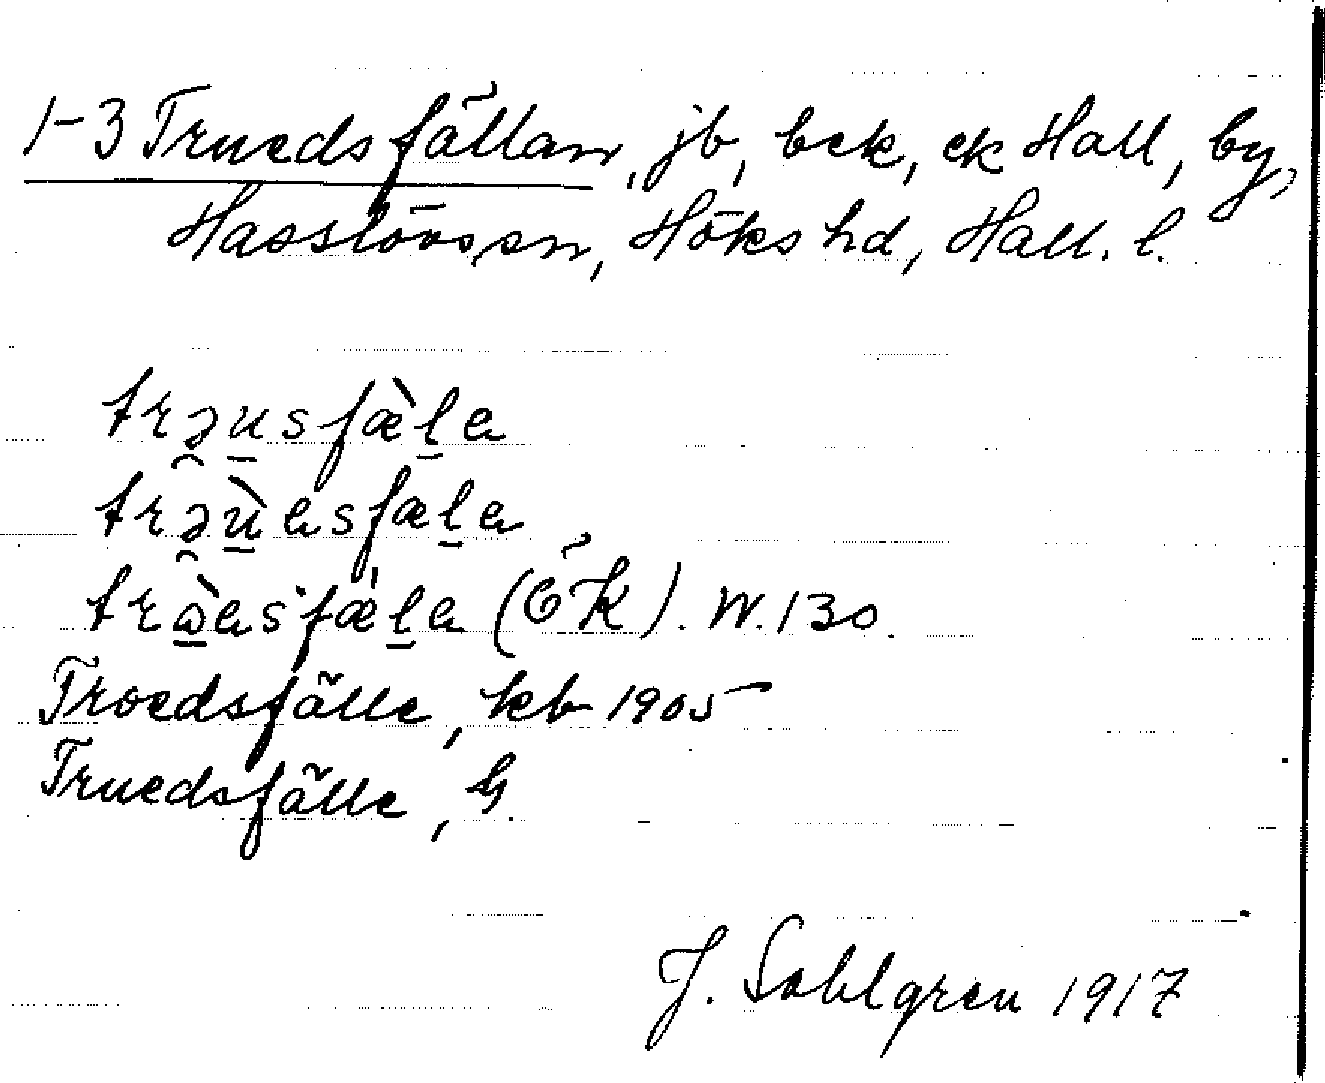 1-3 Truedsfällan, jb, bek, ek Hall, by,
Hasslövs sn, Höks hd, Hall. l.
trə̯u̱sfæ̀ḻa
trə̯ù̱asfæḻa
trò̱asfæ̍ḻa (ÖK). W. 130.
Troedsfälle, kb 1905
Truedsfälle, G.
J. Sahlgren 1917